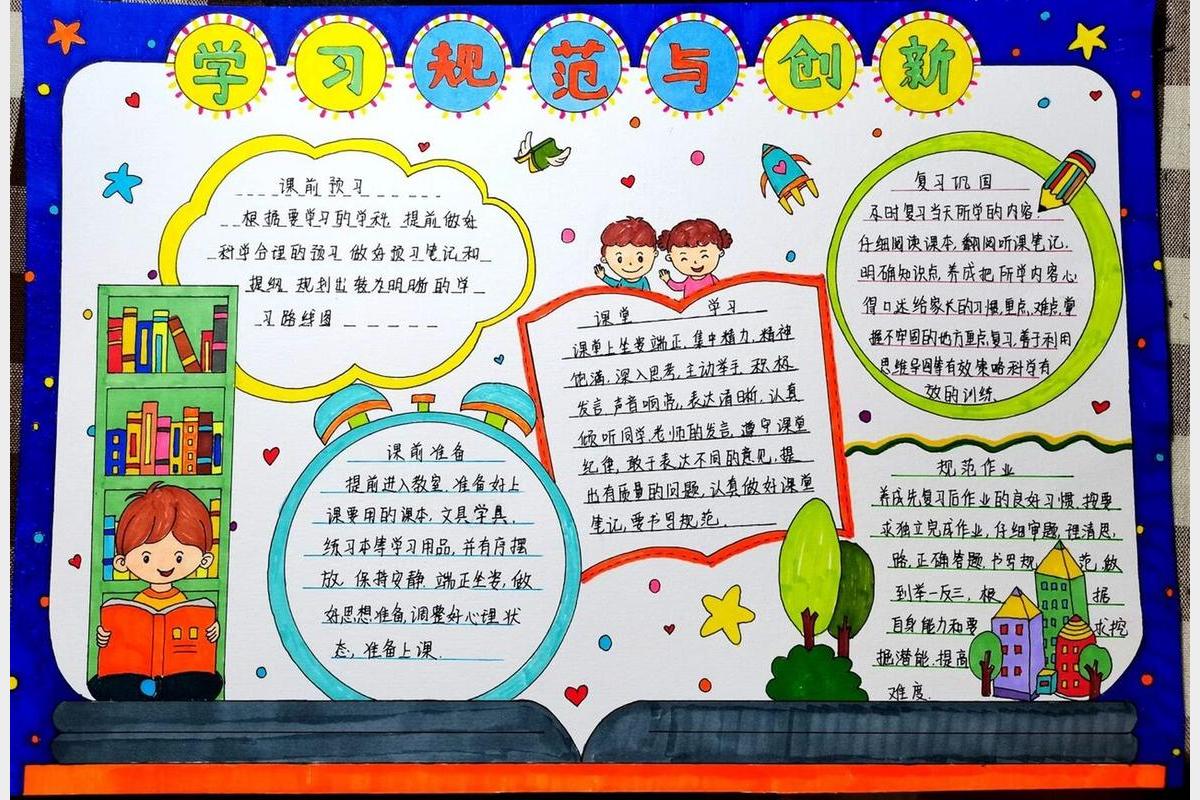 学习规范与创新
课前预习
根据要学习的学科,提前做好
科学合理的预习,做好预习笔记和
提纲,规划出较为明晰的学
习路线图
课前准备
提前进入教室,准备好上
课要用的课本,文具学具,
练习本等学习用品,并有序摆
放,保持安静,端正坐姿,做
好思想准备,调整好心理状
态,准备上课.
课堂 学习
课堂上坐姿端正,集中精力,精神
饱满,深入思考,主动举手,积极
发言,声音响亮,表达清晰,认真
倾听同学,老师的发言,遵守课堂
纪律,敢于表达不同的意见,提
出有质量的问题,认真做好课堂
笔记,要书写规范.
复习巩固
及时复习当天所学的内容.
仔细阅读课本,翻阅听课笔记.
明确知识点,养成把所学内容心
得口达给家长的习惯,重点,难点,掌
握不牢固的地方重点复习,善于利用
思维导图等有效策略科学有
效的训练.
规范作业
养成先复习后作业的良好习惯,按要
求独立完成作业,仔细审题,理清思
路,正确答题,书写规范,做
到举一反三,根据
自身能力和要求挖
掘潜能,提高
难度.